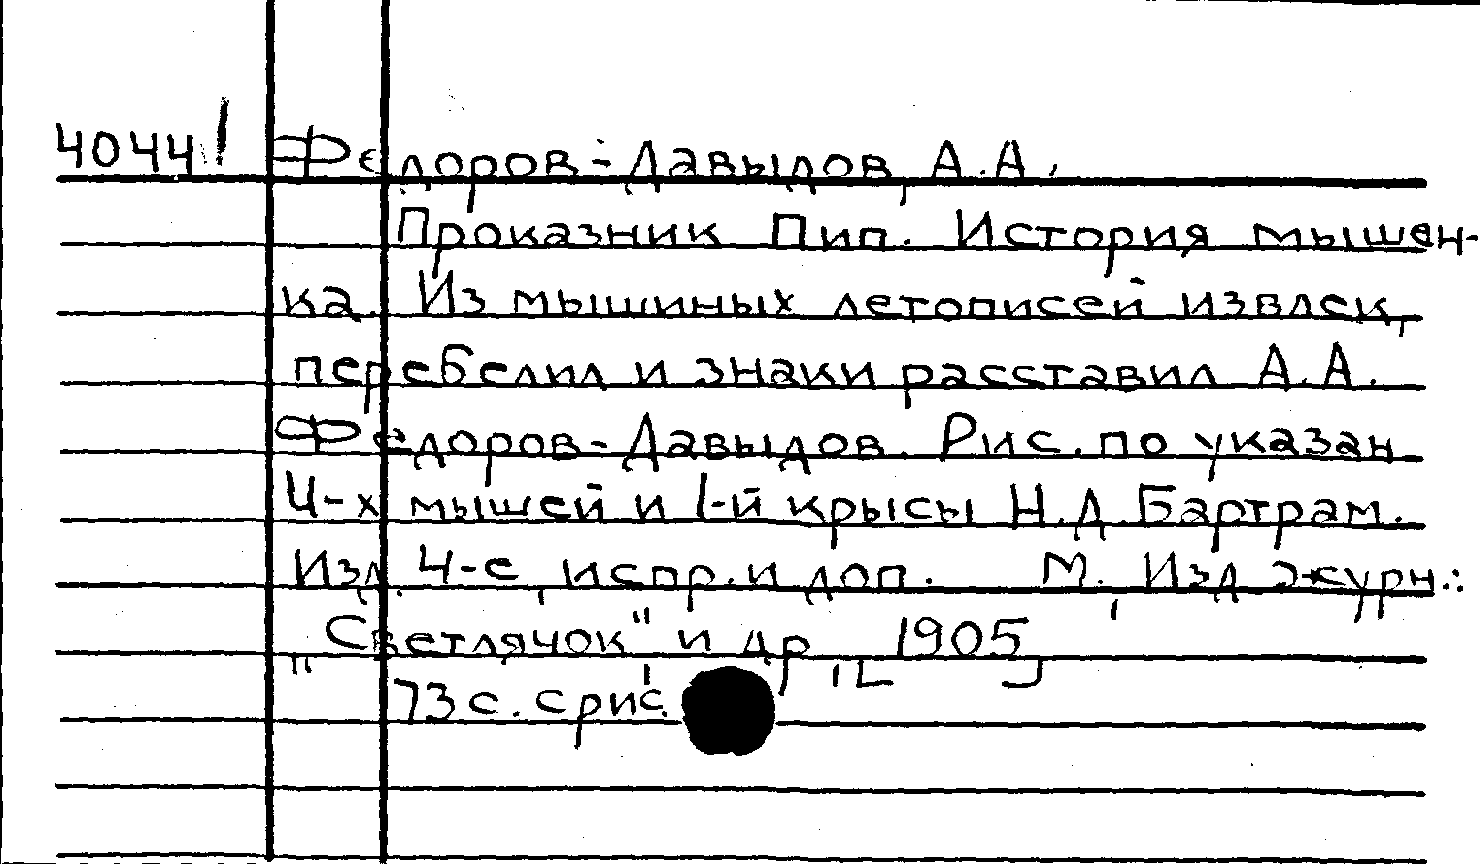 4044! Федоров-Давыдов, А.А.
Проказник Пип. История мышен-
ка. Из мышиных летописей извлек,
перебелил и знаки расставил А.А.
Федоров-Давыдов. Рис. по указан.
4-х мышей и 1-й крысы Н.Д. Бартрам.
Изд. 4-е, испр. и доп. М., Изд. журн.:
„Светлячок" и др., [1905]
73 с. с рис.